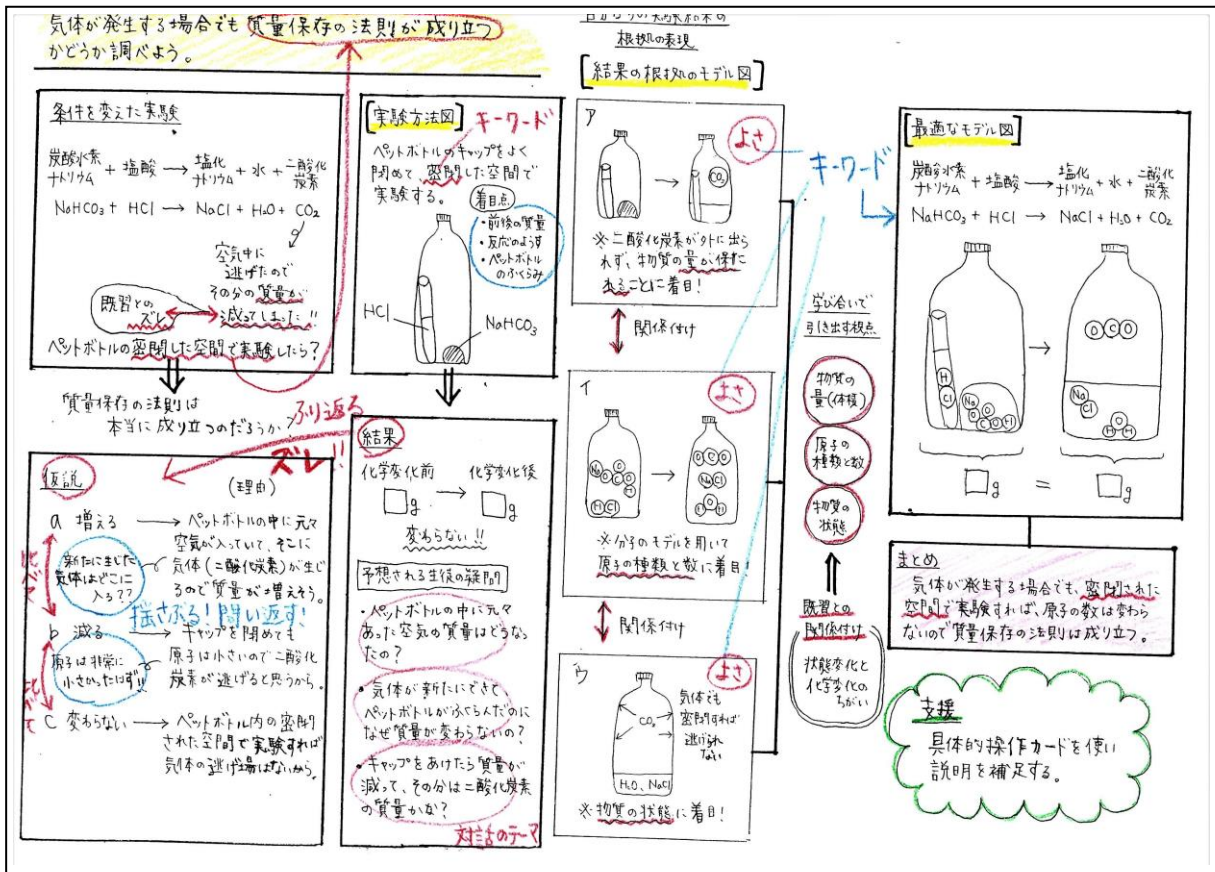 気体が発生する場合でも質量保存の法則が成り立つ
かどうか調べよう。
条件を変えた実験
炭酸水素
ナトリウム + 塩酸 → 塩化
ナトリウム + 水 + 二酸化
炭素
NaHCO3 + HCl → NaCl + H2O + CO2
空気中に
逃げたので
その分の質量が
減ってしまった!!
既習との
ズレ
ペットボトルの密閉した空間で実験したら?
質量保存の法則は
本当に成り立つのだろうか
ふり返る
ズレ!!
仮説
(理由)
a 増える → ペットボトルの中に元々
空気が入っていて、そこに
気体(二酸化炭素)が生じ
るので質量が増えそう。
新たに生じた
気体はどこに
入る??
揺さぶる!問い返す!
b 減る → キャップを閉めても
原子は小さいので二酸化
炭素が逃げると思うから。
原子は非常に
小さかったはず!!
C 変わらない → ペットボトル内の密閉
された空間で実験すれば
気体の逃げ場はないから。
[実験方法図]
キーワード
ペットボトルのキャップをよく
閉めて、密閉した空間で
実験する。
着目点
・前後の質量
・反応のようす
・ペットボトル
のふくらみ
HCl
NaHCO3
結果
化学変化前 → 化学変化後
□g □g
変わらない!!
予想される生徒の疑問
・ペットボトルの中に元々
あった空気の質量はどうなっ
たの?
・気体が新たにできて
ペットボトルがふくらんだのに
なぜ質量が変わらないの?
・キャップをあけたら質量が
減って、その分は二酸化炭素
の質量かな?
対話のテーマ
根拠の表現
[結果の根拠のモデル図]
ア
よさ
CO2
※二酸化炭素が外に出ら
れず、物質の量が保た
れることに着目!
関係付け
イ
よさ
Na O C O O H
H Cl
O C O
Na Cl
H O H
※分子のモデルを用いて
原子の種類と数に着目!
関係付け
ウ
よさ
CO2
気体でも
密閉すれば
逃げられ
ない
H2O、NaCl
※物質の状態に着目!
キーワード
学び合いで
引き出す視点
物質の
量(体積)
原子の
種類と数
物質の
状態
既習との
関係付け
状態変化と
化学変化の
ちがい
[最適なモデル図]
炭酸水素
ナトリウム + 塩酸 → 塩化
ナトリウム + 水 + 二酸化
炭素
NaHCO3 + HCl → NaCl + H2O + CO2
H
Cl
Na O O C O H
O C O
Na Cl
H O H
□g = □g
まとめ
気体が発生する場合でも、密閉された
空間で実験すれば、原子の数は変わら
ないので質量保存の法則は成り立つ。
支援
具体的操作カードを使い
説明を補足する。